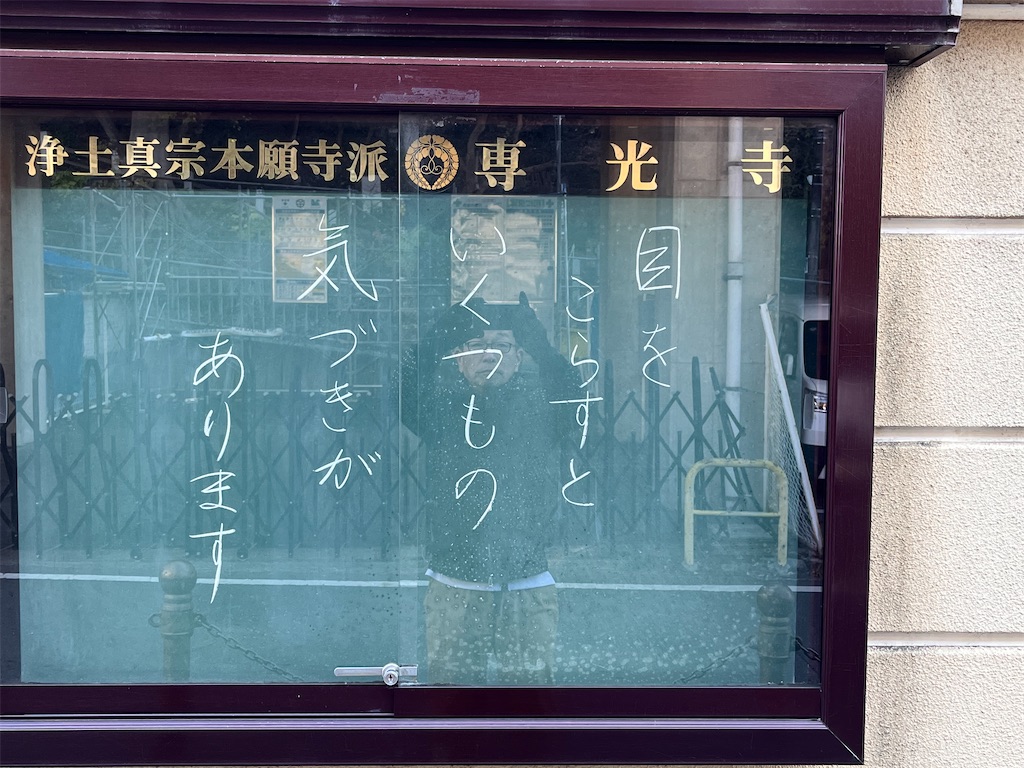 浄土真宗本願寺派 専光寺
目を
こらすと
いくつもの
気づきが
あります